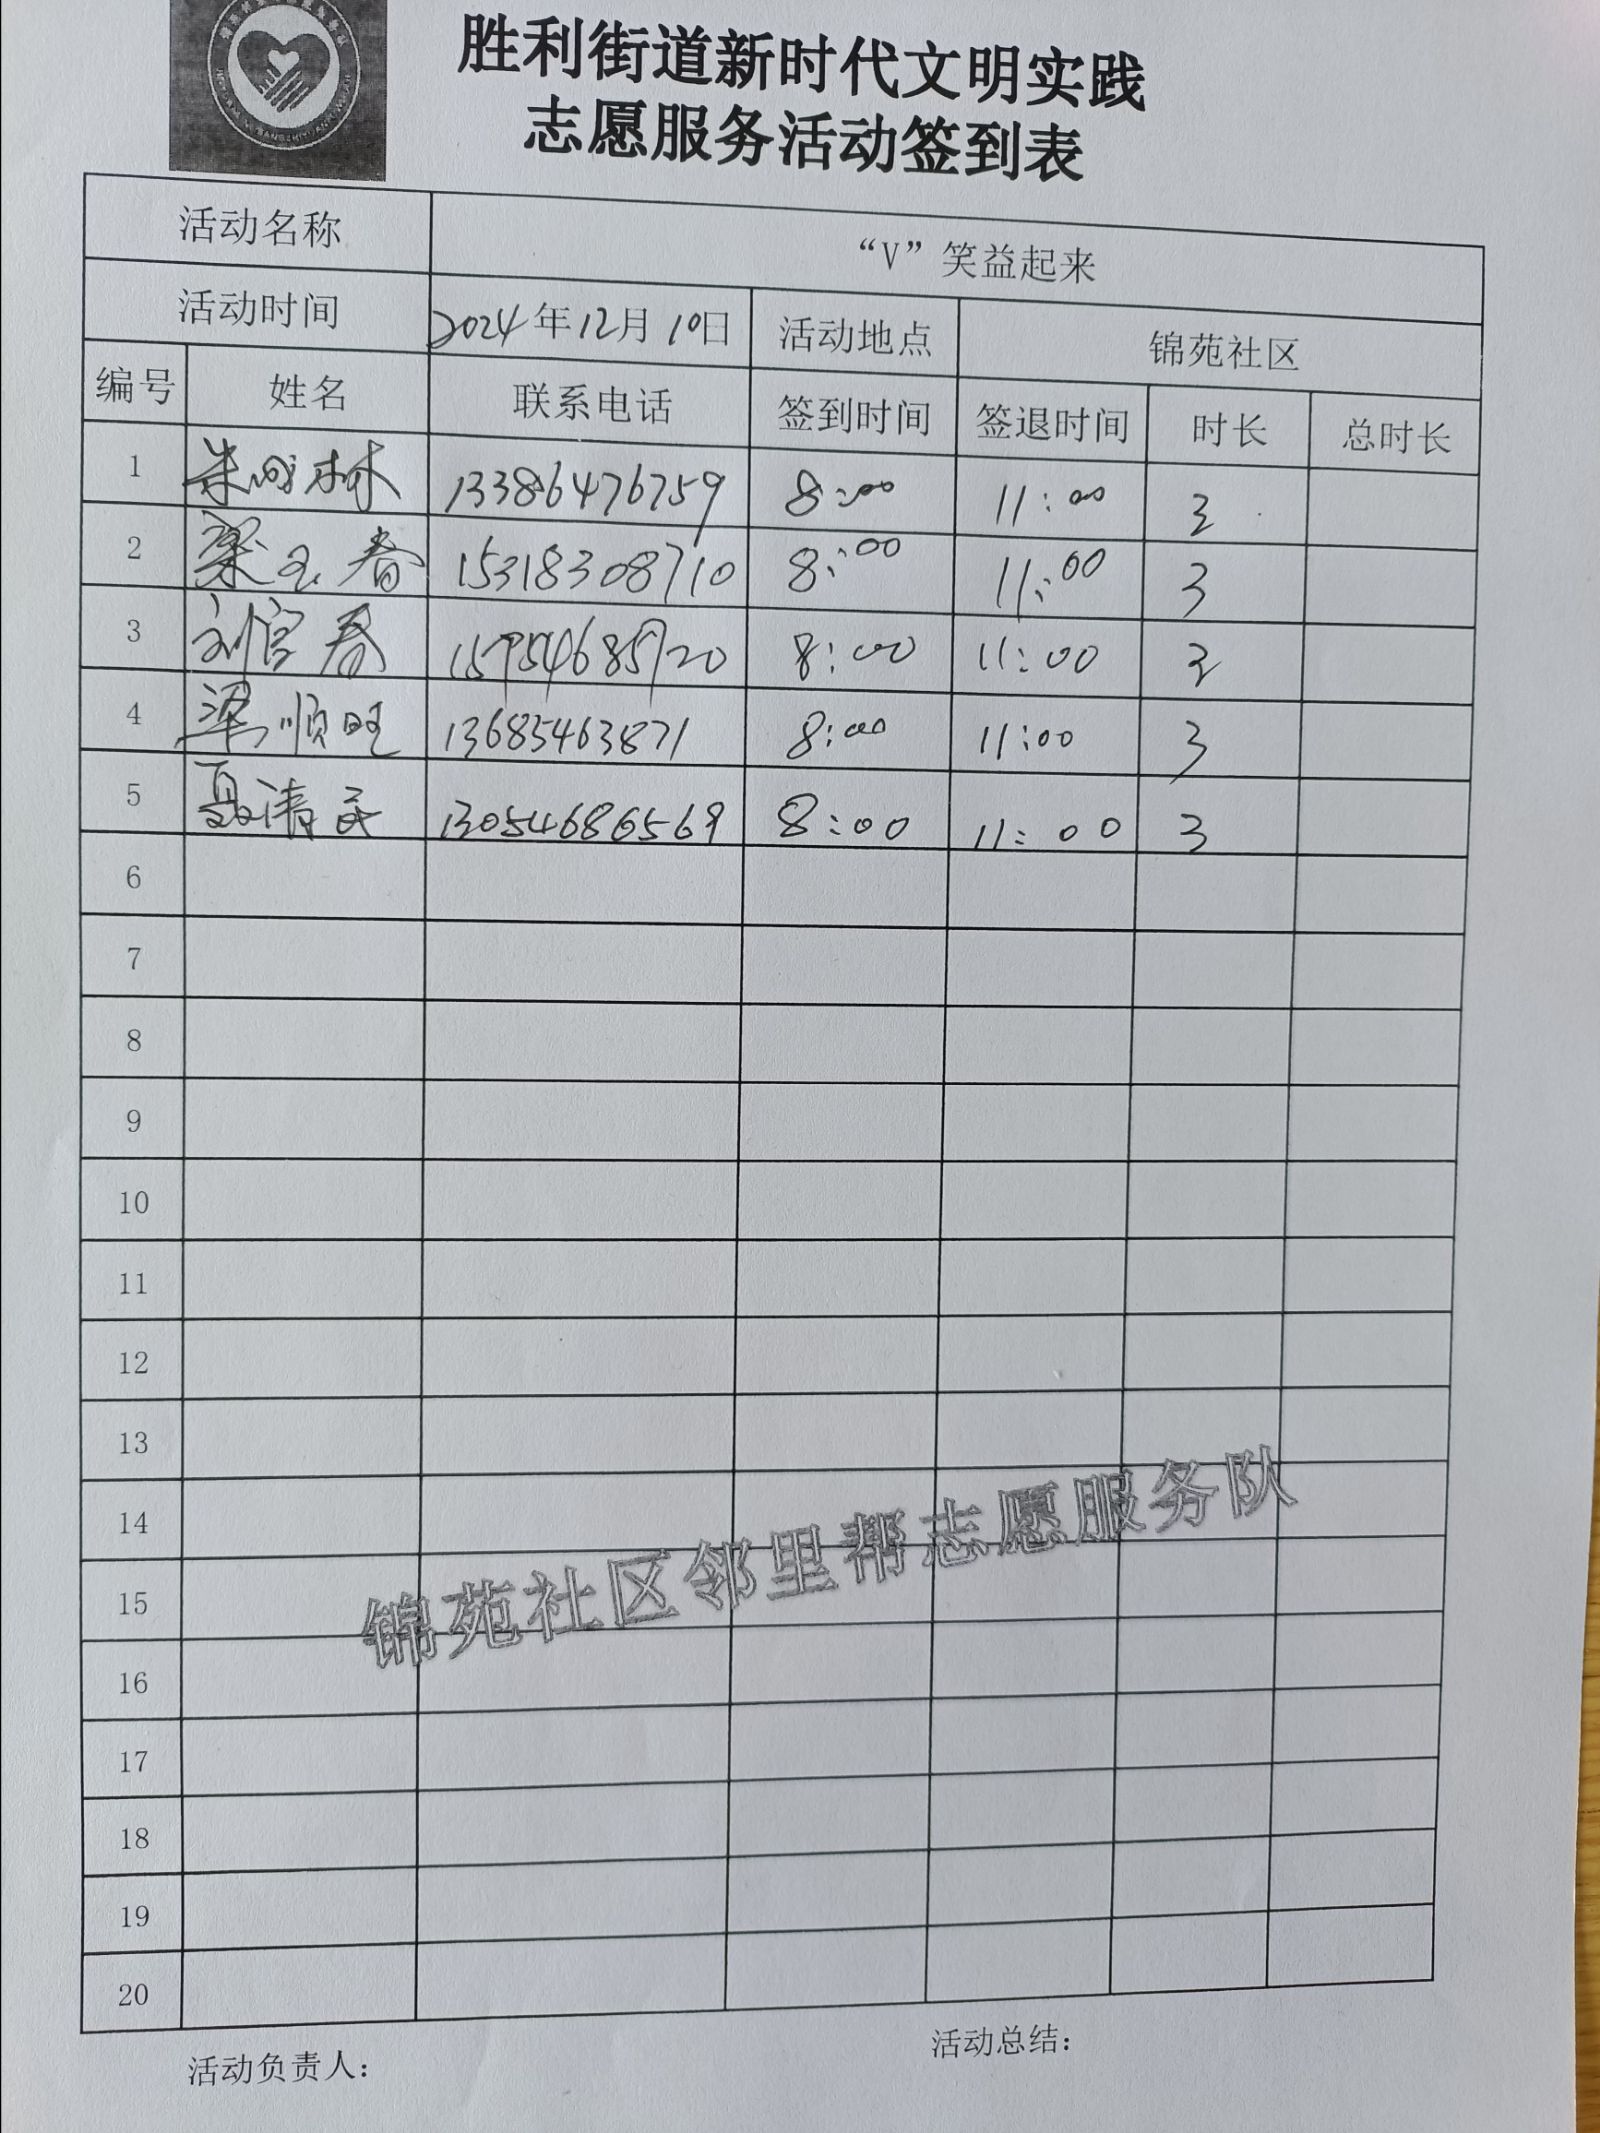 胜利街道新时代文明实践
志愿服务活动签到表
活动名称 “V”笑益起来
活动时间 2024年12月10日 活动地点 锦苑社区
编号 姓名 联系电话 签到时间 签退时间 时长 总时长
1 朱成林 13386476759 8:00 11:00 3
2 梁玉春 15318308710 8:00 11:00 3
3 刘官春 15954685720 8:00 11:00 3
4 梁顺旺 13685463871 8:00 11:00 3
5 聂清民 13054686569 8:00 11:00 3
6
7
8
9
10
11
12
13
14
15
16
17
18
19
20
锦苑社区邻里帮志愿服务队
活动负责人： 活动总结：